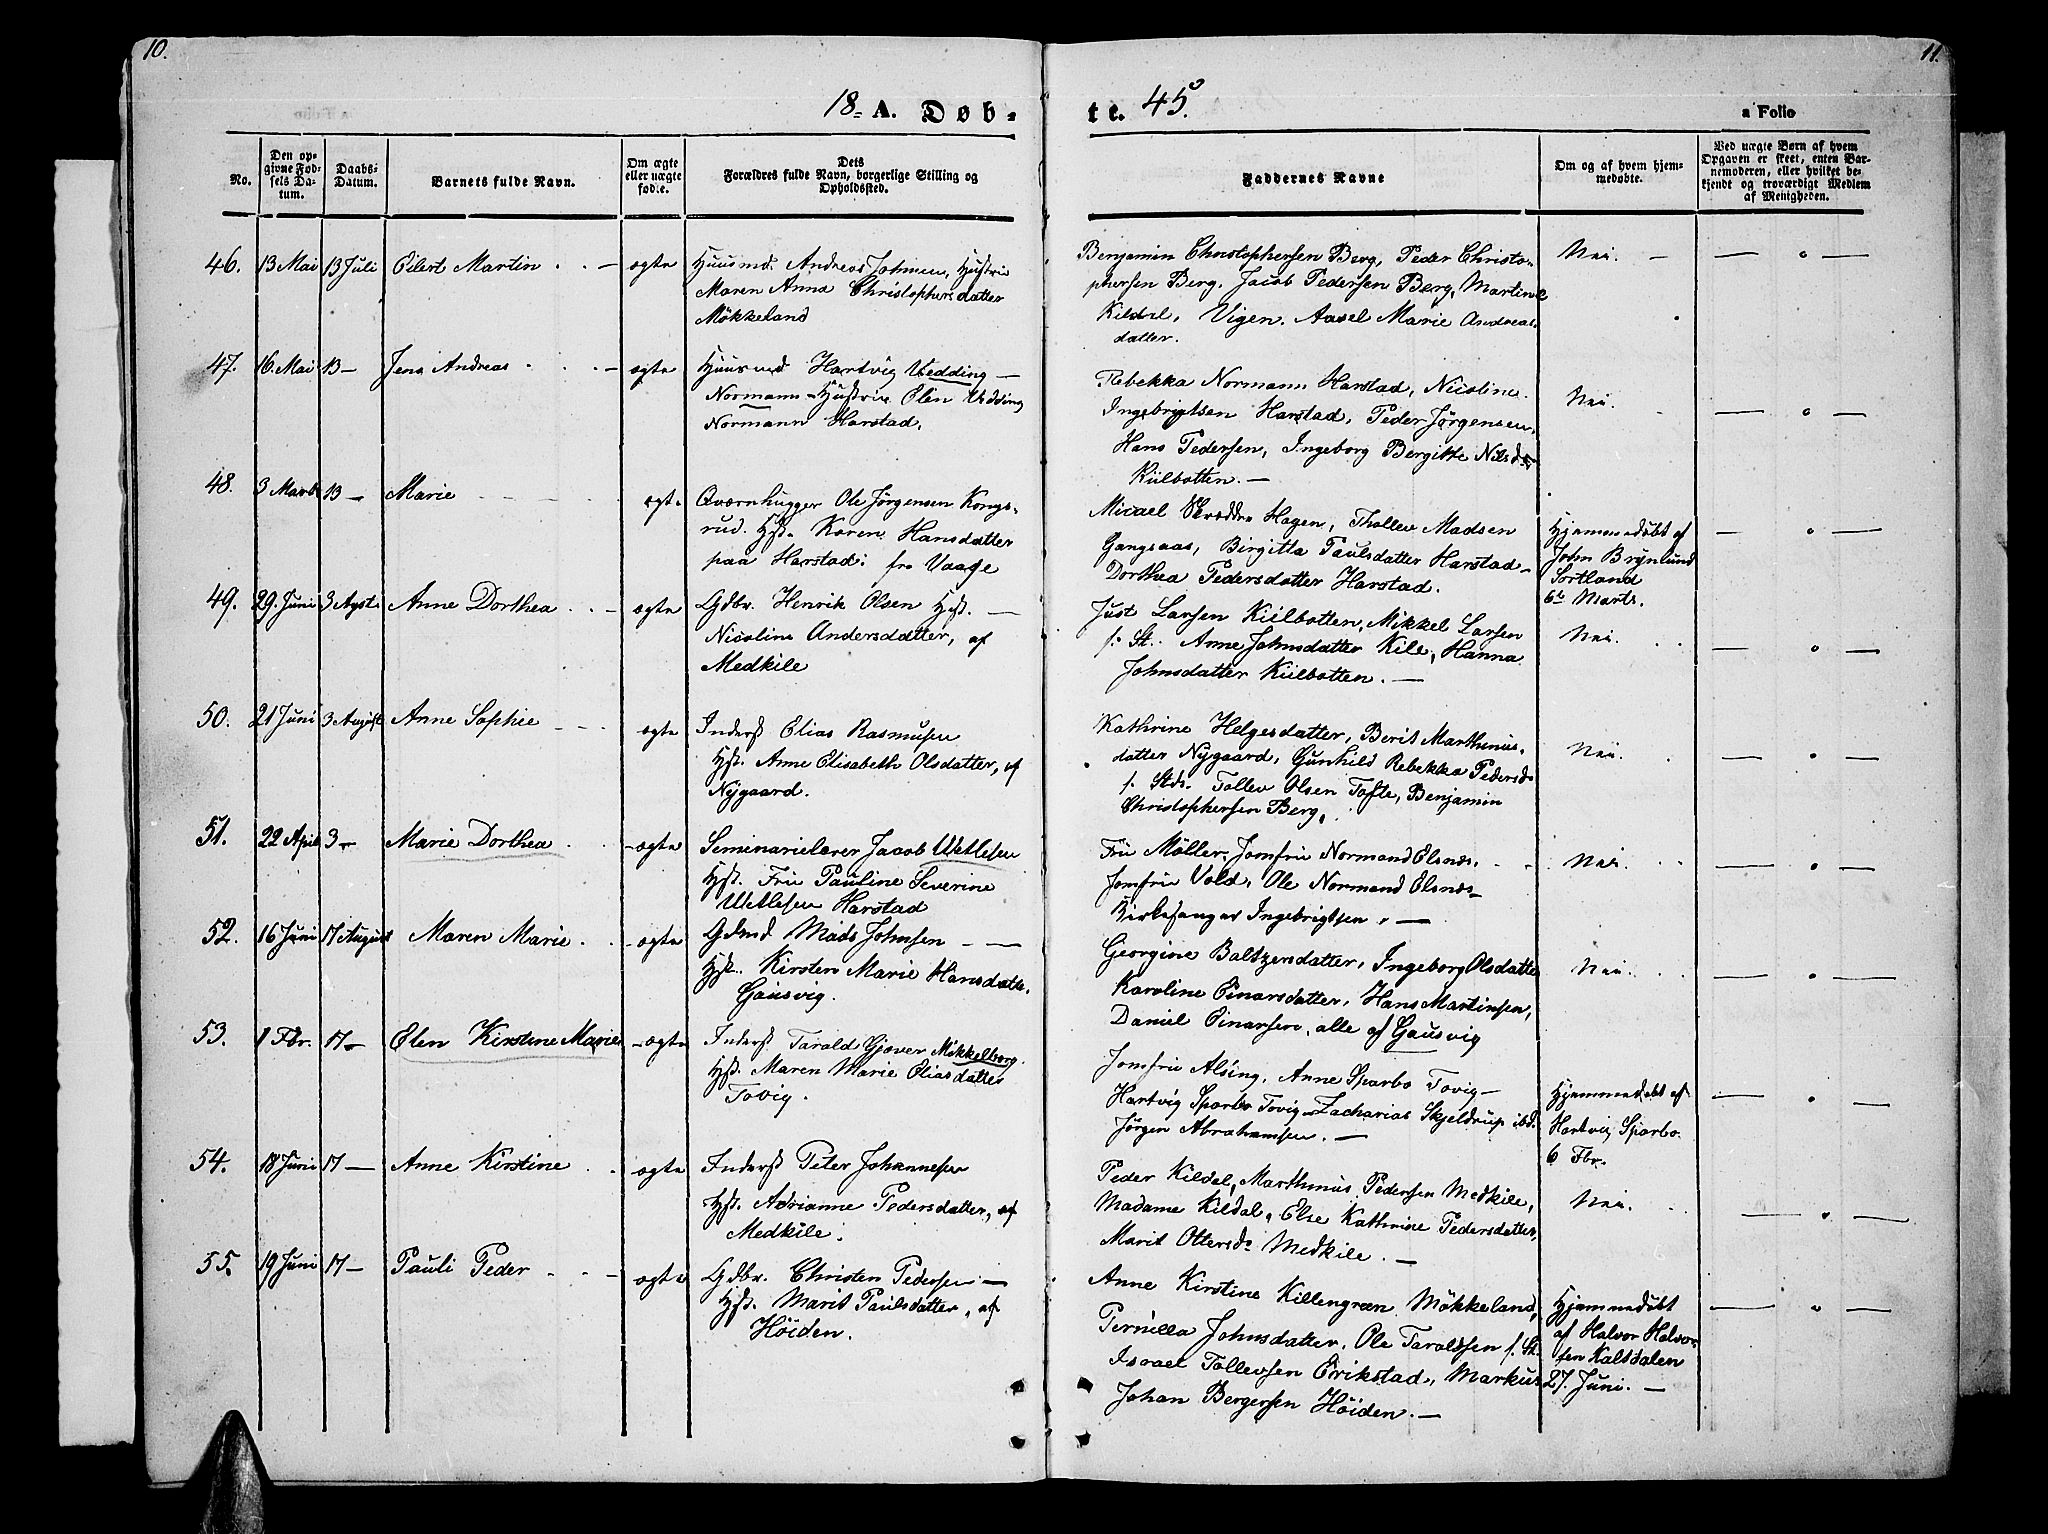 10.
11.
18 A. Døb-
te. 45.
a Folio
No.
Den op-
givne Fød-
sels Da-
tum.
Daabs-
Datum.
Barnets fulde Navn.
Om ægte
eller uægte
fød:e.
Dets
Forældres fulde Navn, borgerlige Stilling og
Opholdsted.
Faddernes Navne
Om og af hvem hjem-
medøbte.
Ved uægte Børn af hvem
Opgaven er skeet, enten Bar-
nemoderen, eller hvilket be-
kjendt og troværdigt Medlem
af Menigheden.
46. 13 Mai 13 Juli Eilert Martin ægte Huusmd. Andreas Johnsen, Hustrue
Maren Anna Christophersdatter
Møkkeland
Benjamin Christophersen Berg, Peder Christo-
phersen Berg. Jacob Pedersen Berg, Martine
Kildal, Vigen. Aasel Marie Andreas-
datter.
Nei. —
47. 16. Mai 13 — Jens Andreas ægte Huusmd Hartvig Wedding —
Normann — Hustrue Elen Wedding
Normann Harstad.
Rebekka Normann Harstad, Nicoline
Ingebrigtsen Harstad, Peder Jørgensen,
Hans Pedersen, Ingeborg Bergitte Nilsdr
Kiilbotten. —
Nei.
48. 3 Marts 13 — Marie ægte Qværnhugger Ole Jørgensen Kongs-
rud. Hst. Karen Hansdatter
paa Harstad: fra Vaage
Micael Skrædder Hagen, Thollev Madsen
Gangsaas, Birgitta Paulsdatter Harstad —
Dorthea Pedersdatter Harstad.
Hjemmedøbt af
John Brynlund
Sortland
6te Marts.
49. 29. Juni 3 Agst. Anne Dorthea ægte Gdbr. Henrik Olsen Hst. —
Nicoline Andersdatter, af
Medkile
Just Larsen Kiilbotten, Mikkel Larsen
s: St. Anne Johnsdatter Kile, Hanna
Johnsdatter Kiilbotten. —
Nei.
50. 21 Juni 3 August Anne Sophie ægte Inderst Elias Rasmusen
Hst. Anne Elisabeth Olsdatter, af
Nygaard.
Kathrine Helgesdatter, Berit Marthinus-
datter Nygaard, Gunhild Rebekka Pedersdr
s. Stds. Tollev Olsen Tofte, Benjamin
Christophersen Berg.
Nei.
51. 22 April 3 — Marie Dorthea ægte Seminarielærer Jacob Wetlesen
Hst. Fru Pauline Severine
Wetlesen Harstad
Fru Møller, Jomfru Normand Elsnes,
Jomfru Vold, Ole Normand Elsnes —
Kirkesanger Ingebrigtsen. —
Nei.
52. 16 Juni 17 August Maren Marie ægte Gdmd Mads Johnsen — —
Hst. Kirsten Marie Hansdatter
Gausvig.
Georgine Baltzersdatter, Ingeborg Olsdatter
Karoline Einarsdatter, Hans Martinsen,
Daniel Einarsen, alle af Gausvig
Nei.
53. 1 Fbr. 17 — Elen Kirstine Marie ægte Inderst Tarald Gjøver Møkkelborg.
Hst. Maren Marie Eliasdatter
Tovig.
Jomfru Alsing, Anne Sparbo Tovig —
Hartvig Sparbo Tovig — Zacharias Skjeldrup ibd.
Jørgen Abrahamsen. —
Hjemmedøbt af
Hartvig Sparbo.
6 Fbr.
54. 18 Juni 17 — Anne Kirstine ægte Inderst Peter Johannesen
Hst. Adrianne Pedersdatter, af
Medkile.
Peder Kildal, Marthinus Pedersen Medkile,
Madame Kildal, Else Kathrine Pedersdatter,
Marit Ottersdr Medkile. —
Nei.
55. 19 Juni 17 — Pauli Peder ægte Gdbr. Christen Pedersen —
Hst. Marit Paulsdatter, af
Høiden.
Anne Kirstine Killengreen Møkkeland,
Pernilla Johnsdatter, Ole Taraldsen s. St.
Israel Tollevsen Erikstad, Markus
Johan Bergersen Høiden. —
Hjemmedøbt
af Halvor Halvor-
sen Kaltdalen
27. Juni. —